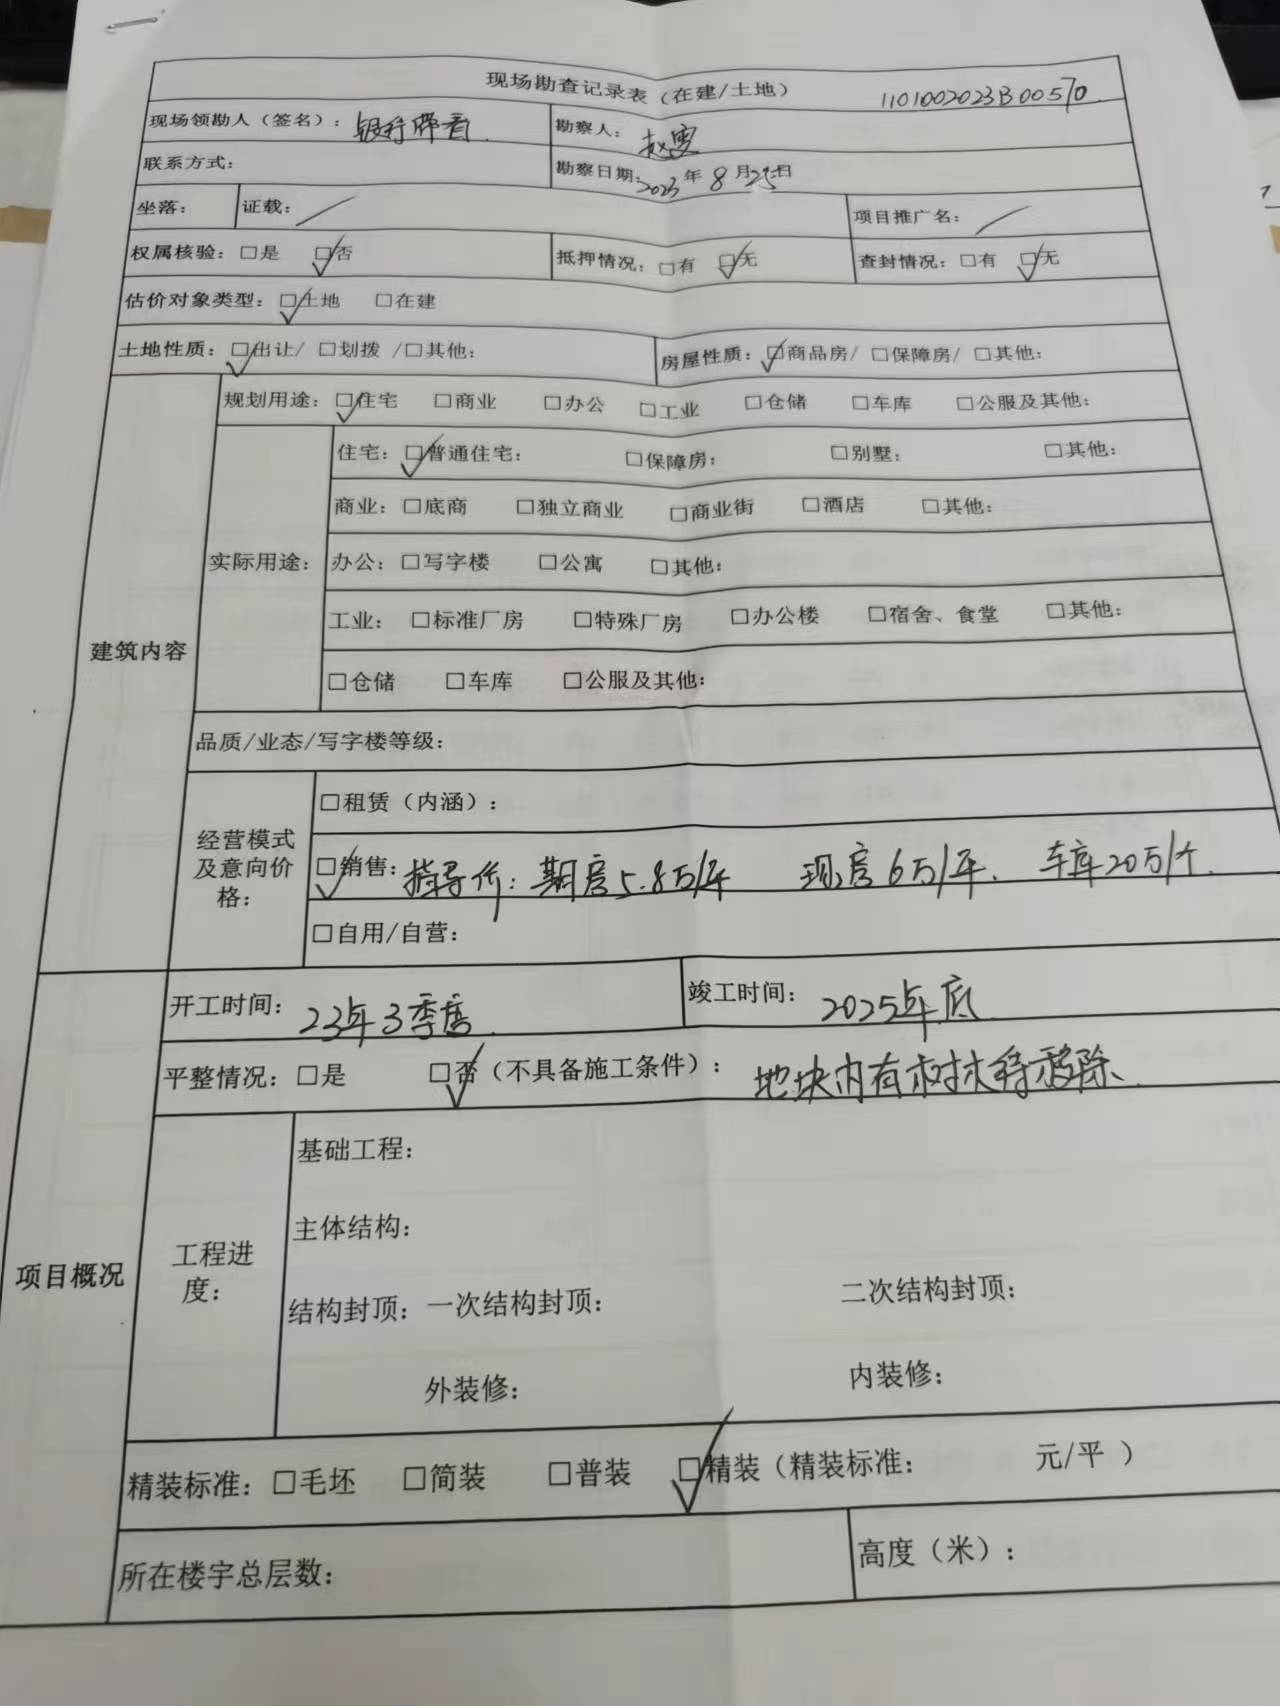 现场勘查记录表（在建/土地） 1101002023B00570
现场领勘人（签名）：银行带看 勘察人：赵寅
联系方式： 勘察日期：2023年8月25日
坐落： 证载：／ 项目推广名：／
权属核验：□是 ☑否 抵押情况：□有 ☑无 查封情况：□有 ☑无
估价对象类型：☑土地 □在建
土地性质：☑出让/ □划拨 /□其他： 房屋性质：☑商品房/ □保障房/ □其他：
建筑内容
规划用途：☑住宅 □商业 □办公 □工业 □仓储 □车库 □公服及其他：
实际用途：
住宅：☑普通住宅： □保障房： □别墅： □其他：
商业：□底商 □独立商业 □商业街 □酒店 □其他：
办公：□写字楼 □公寓 □其他：
工业：□标准厂房 □特殊厂房 □办公楼 □宿舍、食堂 □其他：
□仓储 □车库 □公服及其他：
品质/业态/写字楼等级：
经营模式
及意向价
格：
□租赁（内涵）：
☑销售：指导价：期房5.8万/平 现房6万/平、车库20万/个.
□自用/自营：
项目概况
开工时间：23年3季度 竣工时间：2025年底
平整情况：□是 ☑否（不具备施工条件）：地块内有树林待移除
工程进
度：
基础工程：
主体结构：
结构封顶：一次结构封顶： 二次结构封顶：
外装修： 内装修：
精装标准：□毛坯 □简装 □普装 ☑精装（精装标准： 元/平 ）
所在楼宇总层数： 高度（米）：